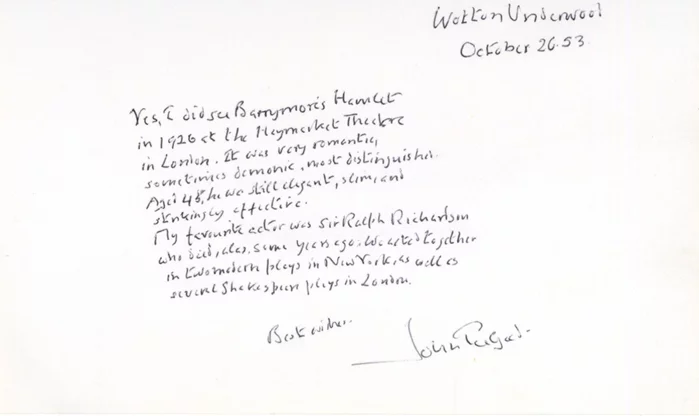 Wotton Underwood
October 26.53.
Yes, I did see Barrymore's Hamlet
in 1926 at the Haymarket Theatre
in London. It was very romantic,
sometimes demonic, most distinguished.
Aged 48, he was still elegant, slim, and
strikingly effective.
My favourite actor was Sir Ralph Richardson
who died, alas, some years ago. We acted together
in two modern plays in New York, as well as
several Shakespeare plays in London.
Best wishes.
John Gielgud.